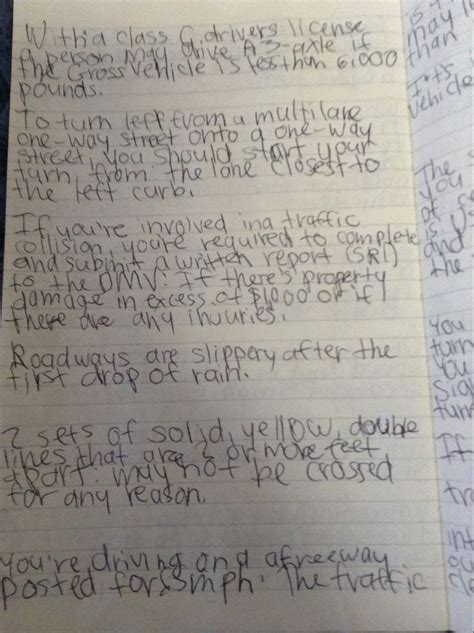 With a class C, drivers license
a person may drive A 3-axle if
the Gross Vehicle is less than 6,000
pounds.
To turn left from a multilane
one-way street onto a one-way
street, you should start your
turn, from the lane closest to
the left curb.
If you're involved in a traffic
collision, you're required to complete
and submit a written report (SR1)
to the DMV: If there's property
damage in excess of $1,000 or if
there are any injuries.
Roadways are slippery after the
first drop of rain.
2 sets of solid, yellow, double
lines that are 2 or more feet
apart. may not be crossed
for any reason.
You're driving and a freeway
posted for 55mph. The traffic
may
than
Vehicle
The
you
and
the
You
turn
you
turn
If